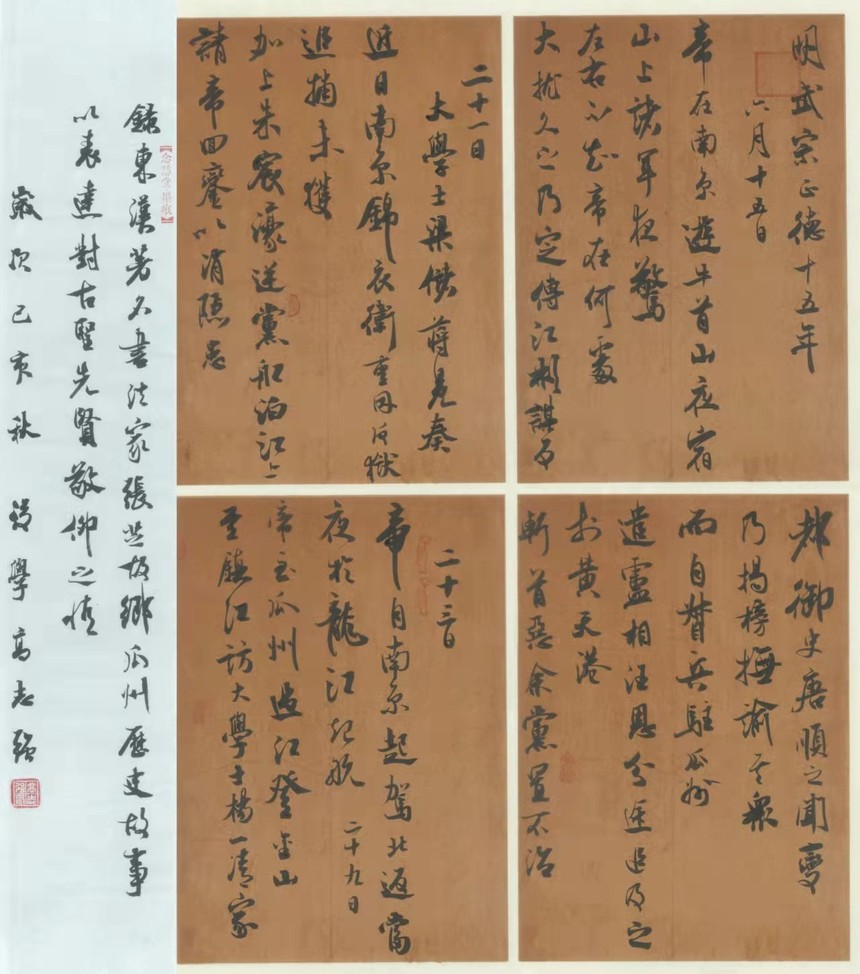 明武宗正德十五年
六月十五日
帝在南京遊牛首山夜宿
山上諸軍夜驚
左右不知帝在何處
大扰久之乃定傳江彬謀為
二十一日
大學士梁儲蔣冕奏
近日南京錦衣衛重囚反獄
追捕未獲
加上朱宸濠逆黨船泊江上
請帝回鑾以消隱患
都御史唐順之聞變
乃揭榜撫諭其眾
而自督兵駐瓜州
遣盧相汪恩分道追及之
於黃天港
斬首惡余黨置不治
二十三日
帝自南京起駕北返當
夜於龍江起航
二十九日
帝至瓜州過江登金山
至鎮江訪大學士楊一清家
錄東漢著名書法家張芝故鄉瓜州歷史故事
以表達對古聖先賢敬仰之情
歲次己亥秋
高志強